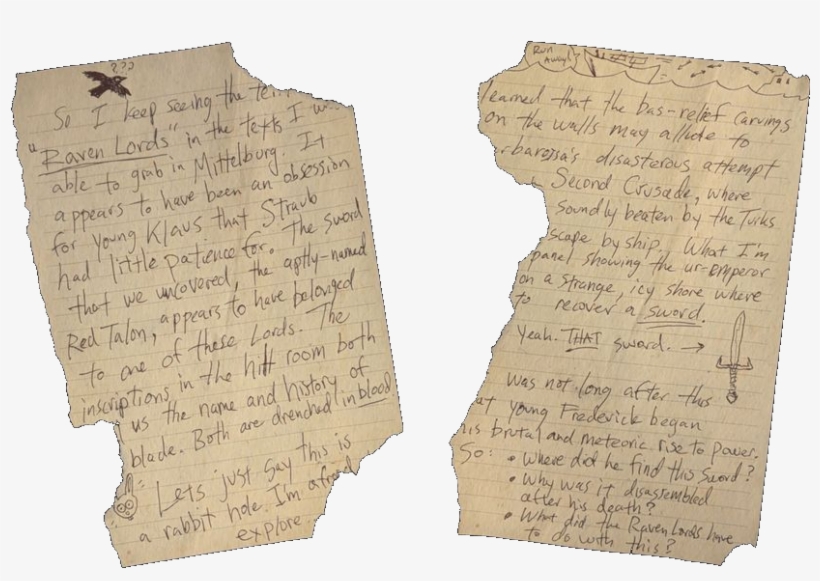 ???
So I keep seeing the te
"Raven Lords" in the texts I w
able to grab in Mittelburg. It
appears to have been an obsession
for young Klaus that Straub
had little patience for. The sword
that we uncovered, the aptly-named
Red Talon, appears to have belonged
to one of these Lords. The
inscriptions in the hilt room both
us the name and history of
blade. Both are drenched in blood
Lets just say this is
a rabbit hole I'm afraid
explore
Run
Away!
learned that the bas-relief carvings
on the walls may allude to
barossa's disasterous attempt
Second Crusade, where
soundly beaten by the Turks
scape by ship. What I'm
panel showing the ur-emperor
on a strange, icy shore where
to recover a sword.
Yeah. THAT sword. →
was not long after this
at young Frederick began
his brutal and meteoric rise to power.
So: • Where did he find this sword?
• Why was it disassembled
after his death?
• What did the Raven Lords have
to do with this?